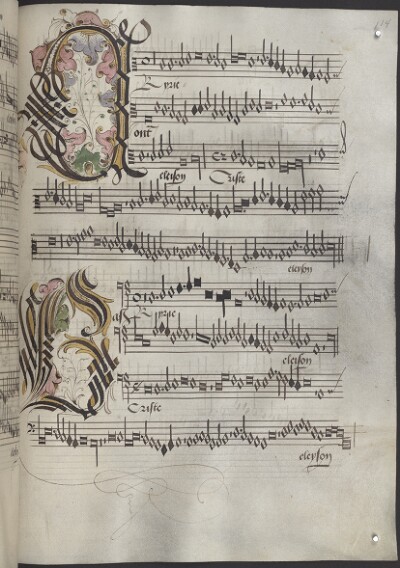 Kyrie
Cont
eleison Criste
eleyson
Bas Kyrie
eleison
Criste
eleyson